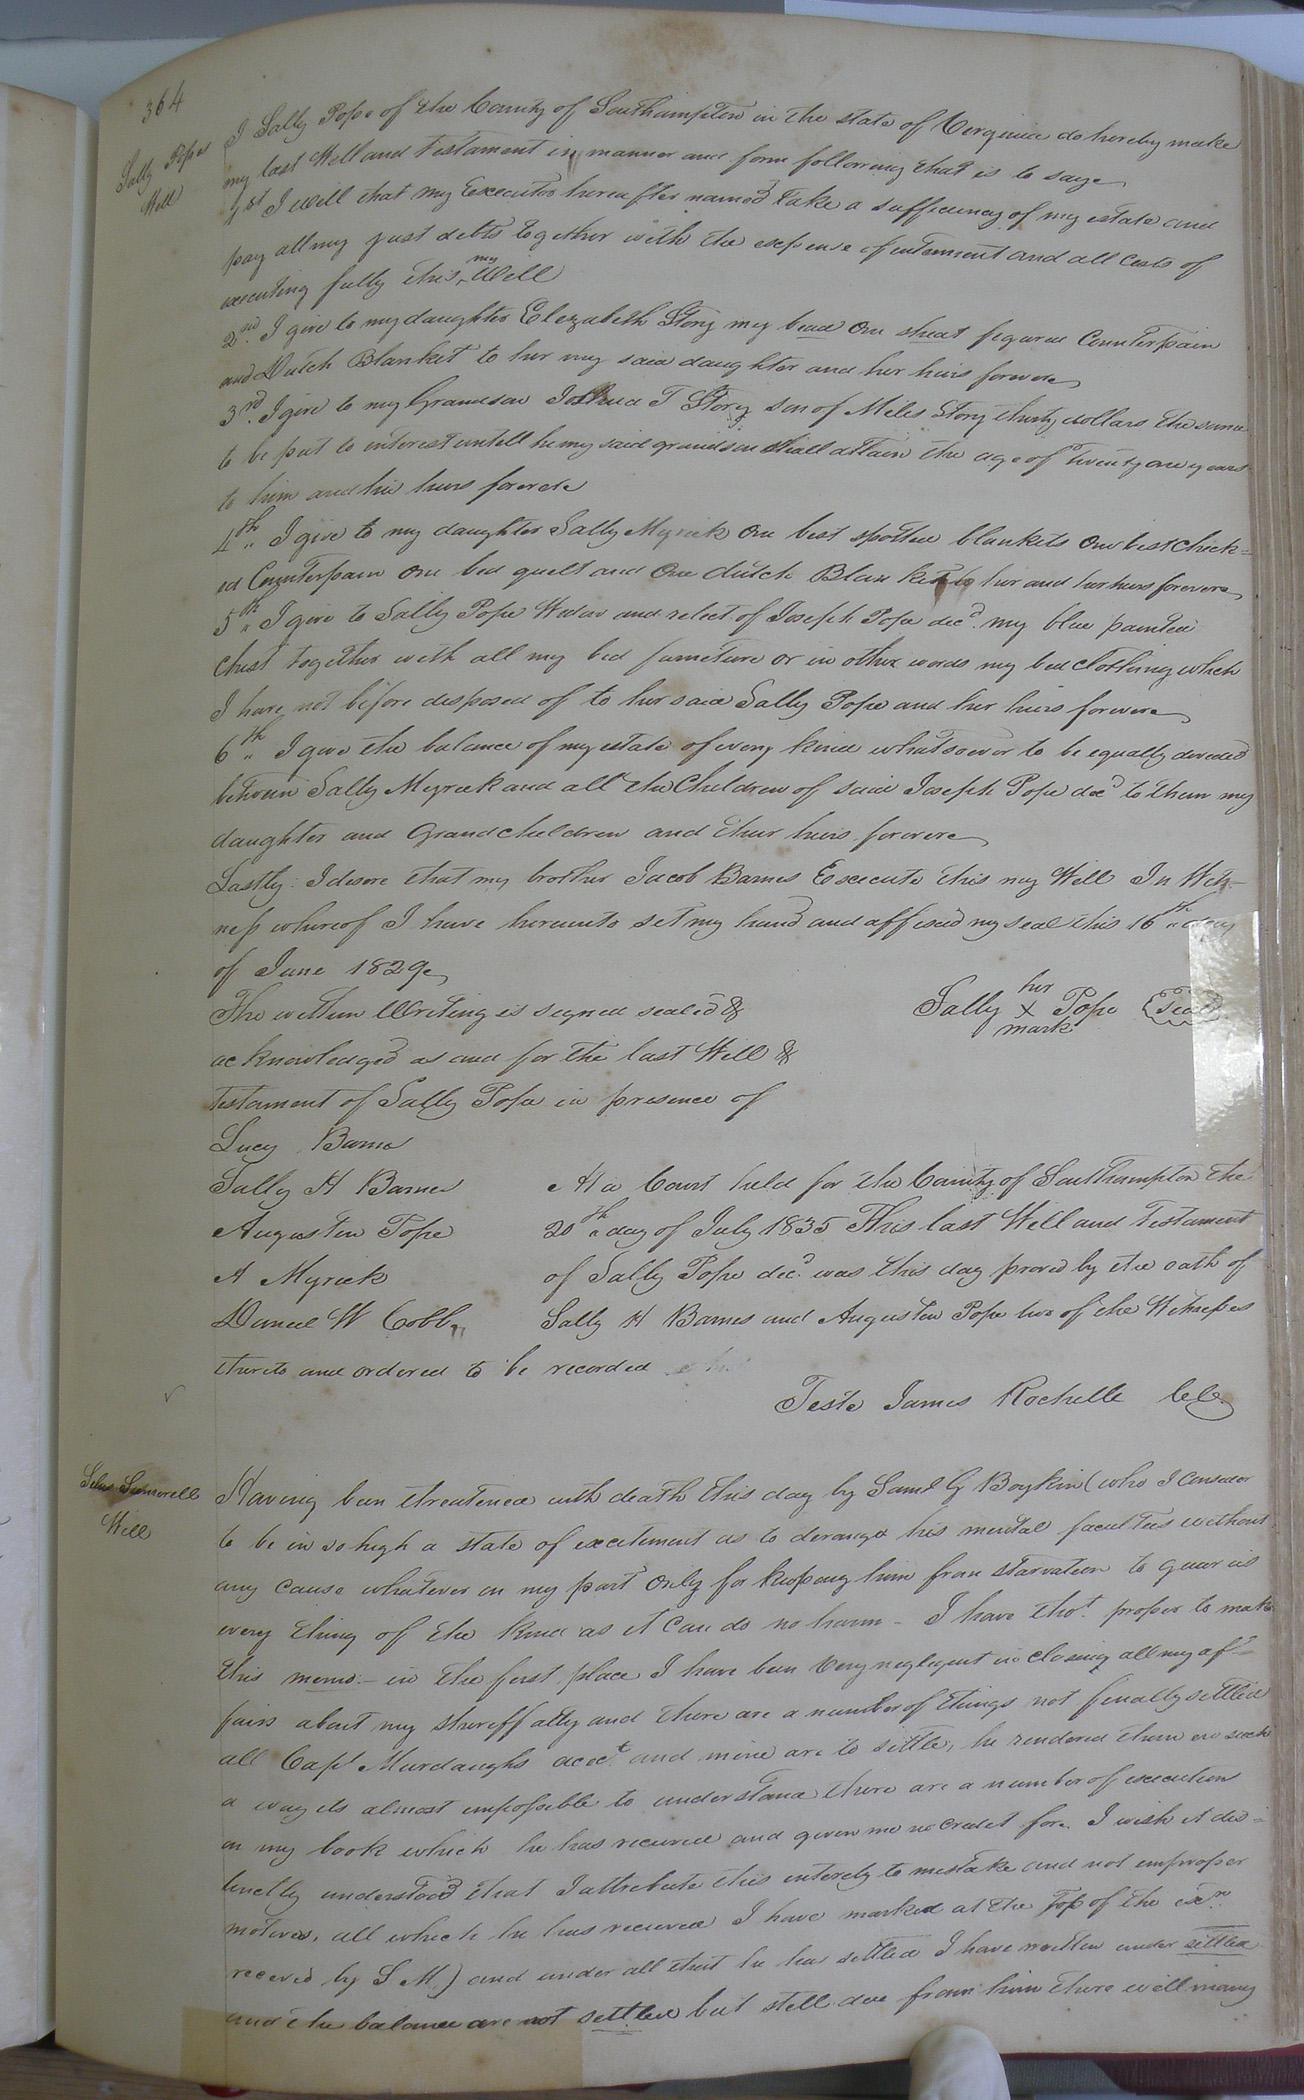 364
Sally Popes
Will
I Sally Pope of the County of Southampton in the state of Virginia do hereby make
my last Will and testament in manner and form following that is to saye
1st I will that my Executor hereafter named take a sufficiency of my estate and
pay all my just debts together with the expense of interment and all costs of
executing fully this my Will
2nd. I give to my daughter Elizabeth Story my bead One sheat figured Counterpain
and Dutch Blanket to her my said daughter and her heirs forever
3rd. I give to my Grandson Joshua T Story son of Miles Story thirty dollars the same
to be put to interest untill he my said grandson shall attain the age of twenty one years
to him and his heirs forever
4th I give to my daughter Sally Myrick One best spotted blankets One best Check-
ed Counterpain One bed quilt and One dutch Blanket to her and her heirs forever
5th I give to Sally Pope Widow and relect of Joseph Pope decd. my blue painted
Chest together with all my bed furniture or in other words my bed Clothing which
I have not before disposed of to her said Sally Pope and her heirs forever
6th I give the balance of my estate of every kind whatsoever to be equally devided
between Sally Myrick and all the Children of said Joseph Pope decd to them my
daughter and Grandchildren and their heirs forever
Lastly: I desire that my brother Jacob Barnes Execute this my Will In Wit-
ness whereof I have hereunto set my hand and affixed my seal this 16th day
of June 1829
The within Writing is signed sealed &
acknowledged as and for the last Will &
testament of Sally Pope in presence of
her
Sally X Pope Seal
mark
Lucy Barnes
Sally H Barnes
Augustin Pope
A Myrick
Daniel W Cobb
At a Court held for the County of Southampton the
20th day of July 1835 This last Will and testament
of Sally Pope decd. was this day proved by the oath of
Sally H Barnes and Augustin Pope two of the Witnesses
thereto and ordered to be recorded
Teste James Rochelle CC
Summerell
Will
Having been threatened with death this day by Saml G Boykin (who I Consider
to be in so high a state of excitement as to derange his mental faculties without
any cause whatever on my part only for keeping him from starvation to guar
every thing of the kind as it can do no harm - I have thot. proper to make
this memo:- in the first place I have been very negligent in closing all my af-
fairs about my sheriffalty and there are a number of things not finally settled
all Capt Murdaughs acct. and mine are to settle, he rendered them in such
a way its almost impossible to understand there are a number of execution
on my book which he has received and given me no Credit for. I wish it dis-
tinctly understood that I attribute this intirely to mistake and not improper
motives, all which he has received I have marked at the top of the exn.
received by S M.) and under all that he has settled I have written under settled
and the balance are not settled but still due from him there will many